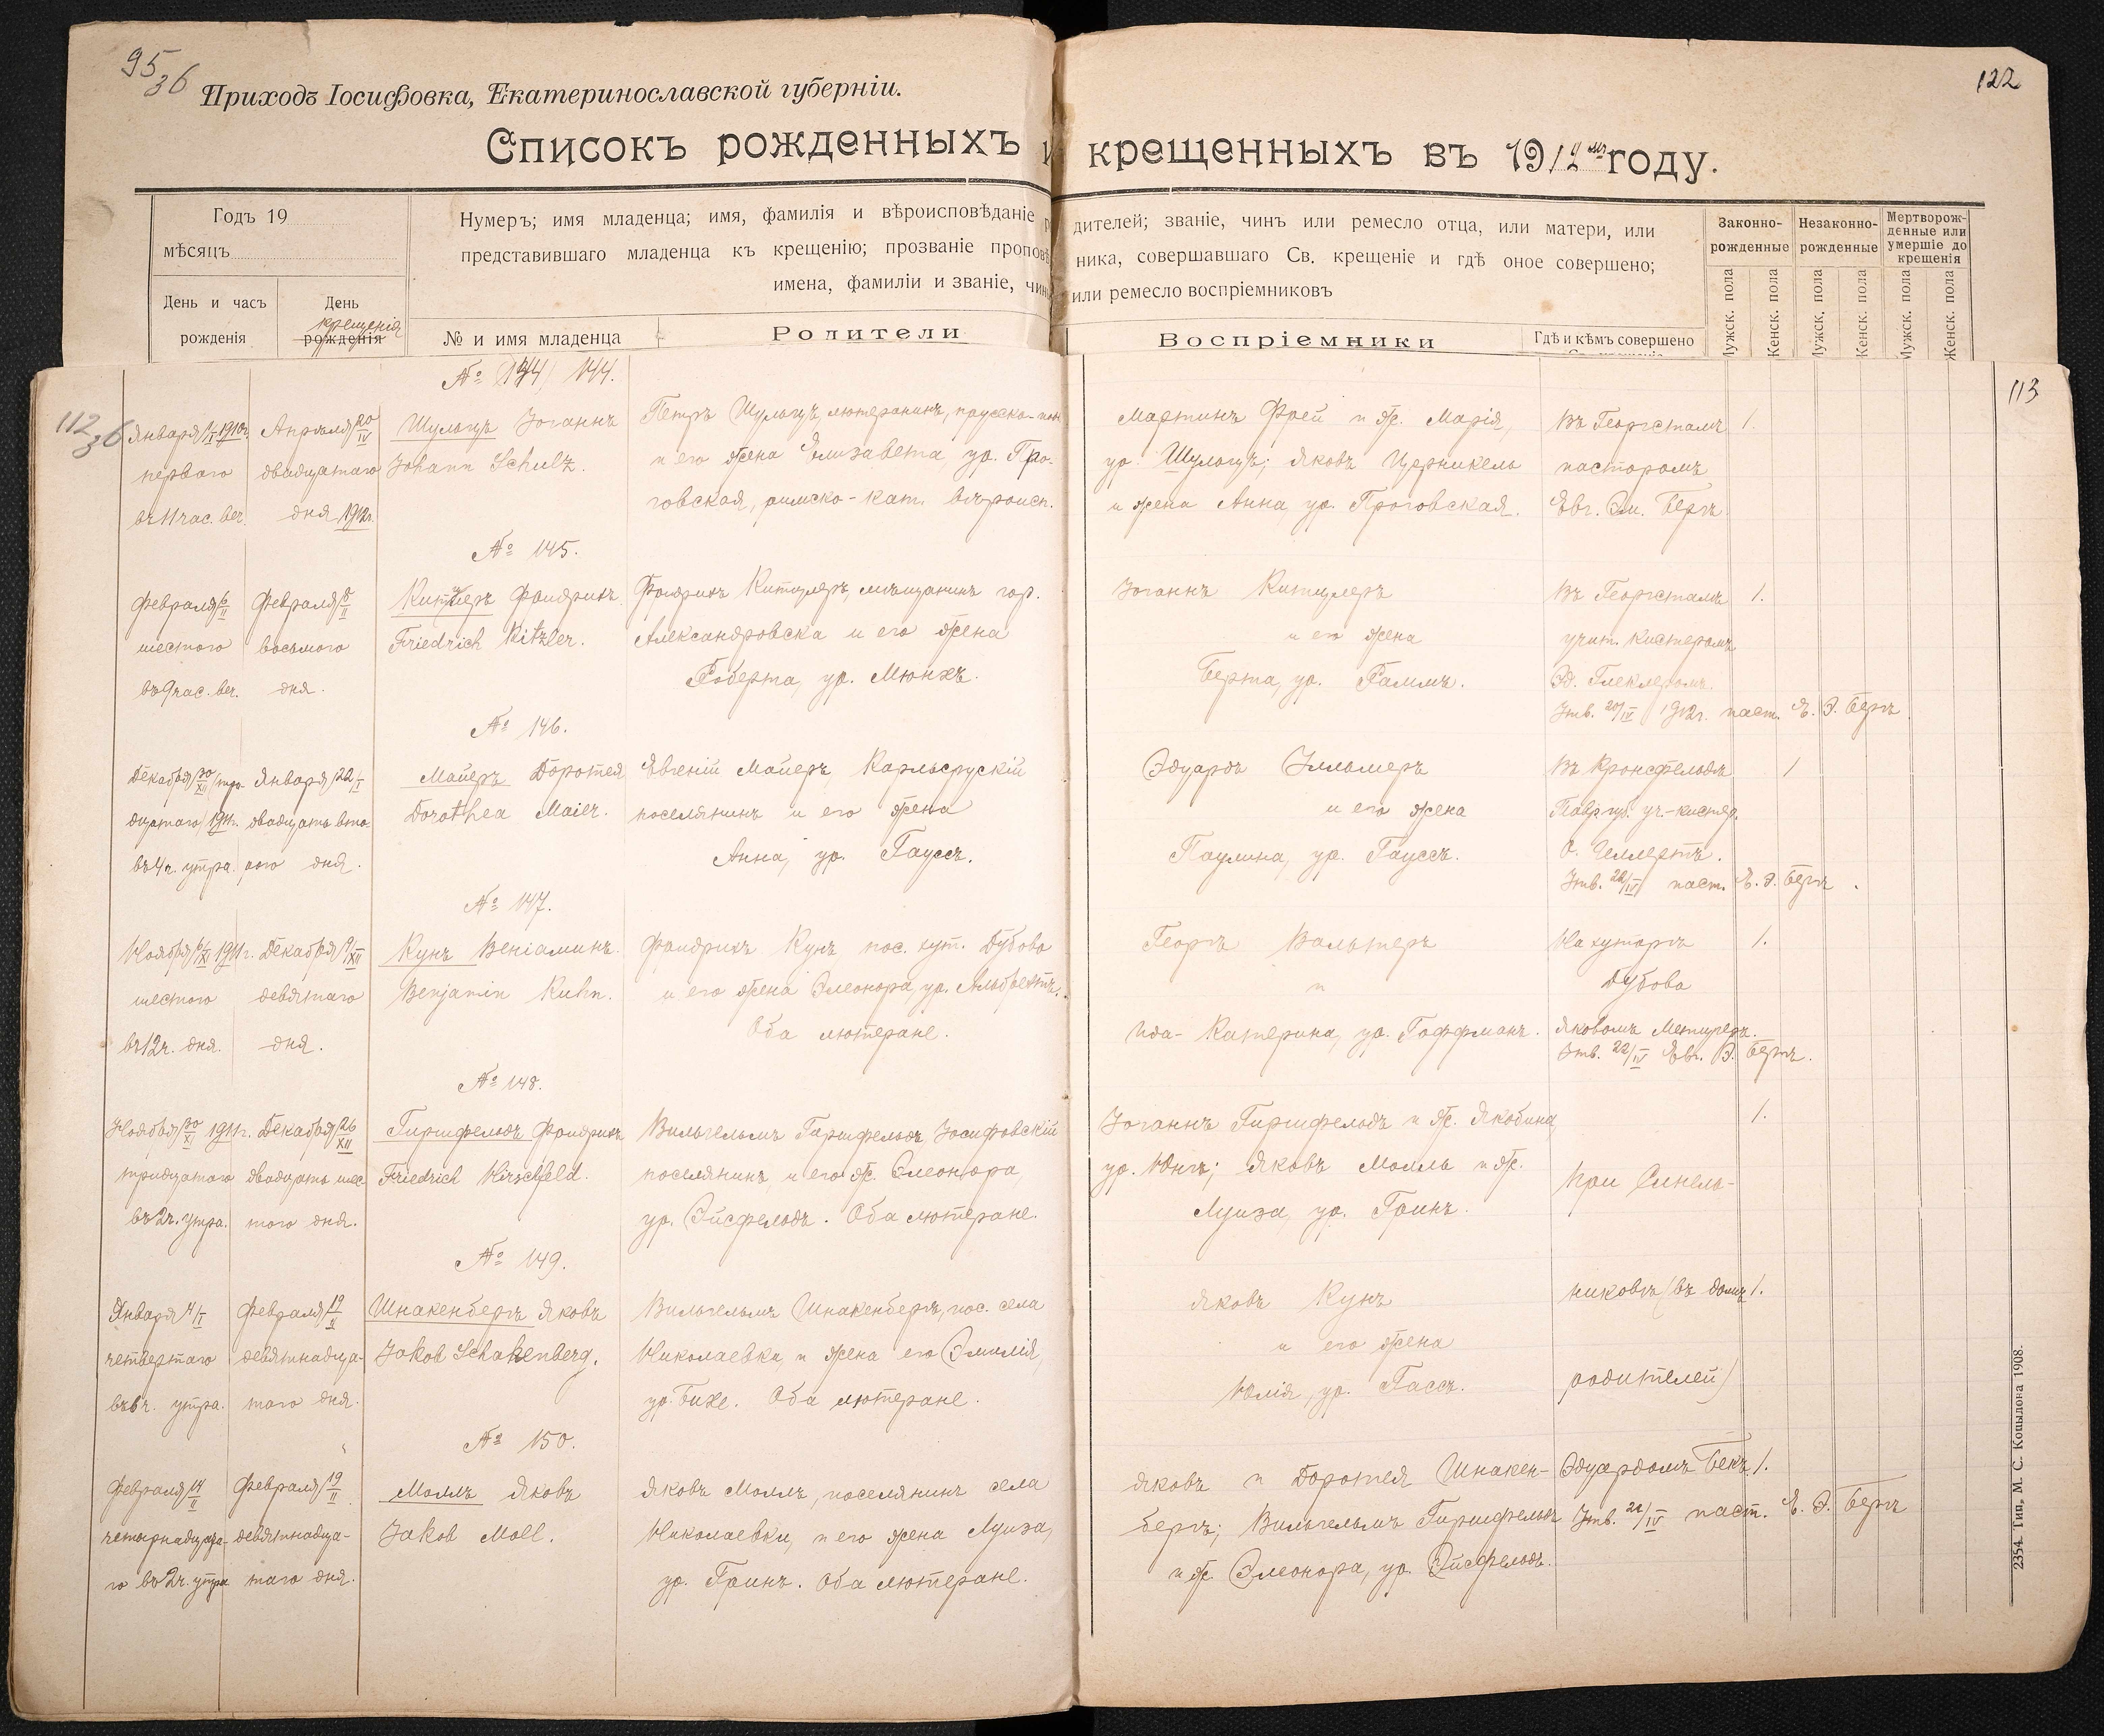 95
зб
122
Приходъ Іосифовка, Екатеринославской губерніи.
Списокъ рожденныхъ и крещенныхъ въ 1912 мъ году.
Годъ 19
мѣсяцъ
День и часъ
рожденія
День
крещенія
рожденія
Нумеръ; имя младенца; имя, фамилія и вѣроисповѣданіе р
дителей; званіе, чинъ или ремесло отца, или матери, или
представившаго младенца къ крещенію; прозваніе проповѣ
ника, совершавшаго Св. крещеніе и гдѣ оное совершено;
имена, фамиліи и званіе, чинъ
или ремесло воспріемниковъ
№ и имя младенца
Родители
Воспріемники
Гдѣ и кѣмъ совершено
Законно-
рожденные
Незаконно-
рожденные
Мертворож-
денные или
умершіе до
крещенія
Мужск. пола
Женск. пола
Мужск. пола
Женск. пола
Мужск. пола
Женск. пола
112
зб
113
№ 144.
Января 1/I 1910г.
перваго
въ 11 час. веч.
Апрѣля 20/IV
двадцатаго
дня 1912г.
Шульцъ Іоганнъ
Johann Schulz.
Петръ Шульцъ, лютеранинъ, прусско-под
и его жена Елизавета, ур. Про-
говская, римско-кат. вѣроисп.
Мартинъ Фрей и ж. Марія,
ур. Шульцъ; Яковъ Церникель
и жена Анна, ур. Проговская.
Въ Георгсталѣ
пасторомъ
Евг. Эм. Бергъ
1.
№ 145.
Февраля 6/II
шестого
въ 9 час. веч.
Февраля 8/II
восьмого
дня.
Китцлеръ Фридрихъ
Friedrich Kitzler.
Фридрихъ Китцлеръ, мѣщанинъ гор.
Александровска и его жена
Роберта, ур. Мюнхъ.
Іоганнъ Китцлеръ
и его жена
Берта, ур. Гаммъ.
Въ Георгсталѣ
учит. кистеромъ
Эд. Глеклеромъ.
Утв. 20/IV 1912г. паст. Е. Э. Бергъ
1.
№ 146.
Декабря 30/XII три-
дцатаго 1911г.
въ 4 ч. утра.
Января 22/I
двадцать вто-
рого дня.
Майеръ Доротея
Dorothea Maier.
Евгеній Майеръ, Карльсрускій
поселянинъ и его жена
Анна, ур. Гауссъ.
Эдуардъ Ульмеръ
и его жена
Паулина, ур. Гауссъ.
Въ Кронсфельдѣ
Тавр. губ. уч.-кистер.
О. Геллертъ.
Утв. 22/IV паст. Е. Э. Бергъ.
1
№ 147.
Ноября 6/XI 1911г.
шестого
въ 12 ч. дня.
Декабря 9/XII
девятаго
дня.
Кунъ Веніаминъ.
Benjamin Kuhn.
Фридрихъ Кунъ, пос. хут. Дубово
и его жена Элеонора, ур. Альбрехтъ.
Оба лютеране.
Георгъ Вальтеръ
и
Ида-Катерина, ур. Гоффманъ.
На хуторѣ
Дубово
Яковомъ Метцгеръ.
Утв. 22/IV Евг. Э. Бергъ.
1.
№ 148.
Ноября 30/XI 1911г.
тридцатаго
въ 2 ч. утра.
Декабря 26/XII
двадцать шес-
того дня.
Гиршфельдъ Фридрихъ
Friedrich Hirschfeld.
Вильгельмъ Гиршфельдъ, Іосифовскій
поселянинъ, и его ж. Элеонора,
ур. Эйсфельдъ. Оба лютеране.
Іоганнъ Гиршфельдъ и ж. Якобина,
ур. Юнгъ; Яковъ Молль и ж.
Луиза, ур. Гринъ.
При Синель-
1.
№ 149.
Января 4/I
четвертаго
въ 6 ч. утра.
Февраля 19/II
девятнадца-
таго дня.
Шнакенбергъ Яковъ
Jakob Schakenberg.
Вильгельмъ Шнакенбергъ, пос. села
Николаевки, и жена его Эмилія,
ур. Бихе. Оба лютеране.
Яковъ Кунъ
и его жена
Юлія, ур. Гассъ.
никовѣ (въ домѣ
родителей)
1.
№ 150.
Февраля 14/II
четырнадцата-
го въ 2 ч. утра
Февраля 19/II
девятнадца-
таго дня.
Моллъ Яковъ
Jakob Moll.
Яковъ Моллъ, поселянинъ села
Николаевки, и его жена Луиза,
ур. Гринъ. Оба лютеране.
Яковъ и Доротея Шнакен-
бергъ; Вильгельмъ Гиршфельдъ
и ж. Элеонора, ур. Эйсфельдъ.
Эдуардомъ Бекъ.
Утв. 21/IV паст. Е. Э. Бергъ
1.
2354. Тип. М. С. Копылова 1908.